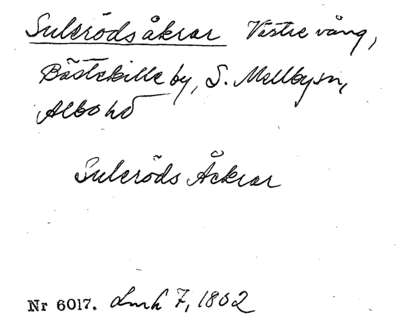 Sulerödsåkrar Vestre vång,
Bästekille by, S. Mellby sn,
Albo hd
Suleröds Åkrar
Nr 6017. Lmh 7, 1802